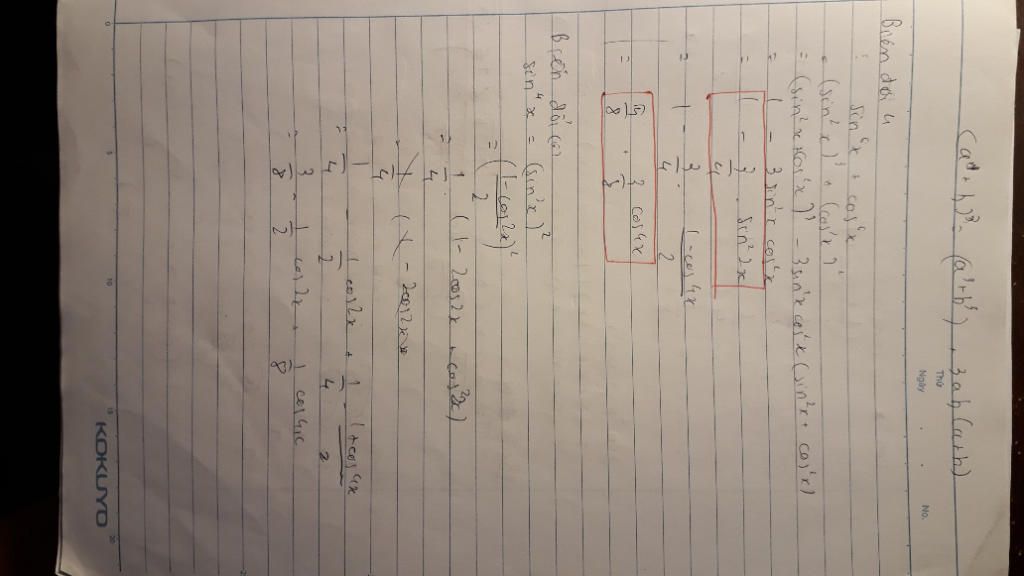 (a + b)³ = (a³ + b³) + 3ab(a + b)
Thứ
Ngày . . No.
Biến đổi 4
sin⁶x + cos⁶x
= (sin²x)³ + (cos²x)³
= (sin²x + cos²x)³ - 3sin²x cos²x (sin²x + cos²x)
= 1 - 3 sin²x cos²x
= 1 - 3/4 . sin²2x
= 1 - 3/4 . (1 - cos4x)/2
= 5/8 + 3/8 cos4x
Biến đổi
sin⁴x = (sin²x)²
= ((1 - cos2x)/2)²
= 1/4 . (1 - 2cos2x + cos²2x)
= 1/4 (1 - 2cos2x
= 1/4 - 1/2 cos2x + 1/4 . (1 + cos4x)/2
= 3/8 - 1/2 cos2x + 1/8 cos4x
0 5 10 15 20
KOKUYO